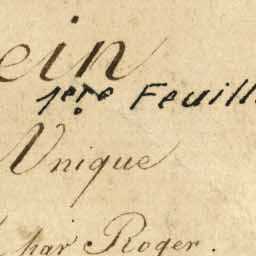 ein
1ère Feuill
Unique
par Roger.